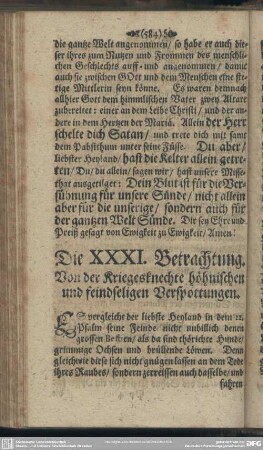 (584)
die gantze Welt angenommen/ so habe er auch die-
ser ihres zum Nutzen und Frommen des menschli-
chen Geschlechts auff- und angenommen/ damit
auch sie zwischen GOtt und dem Menschen eine ste-
tige Mittlerin seyn könne. Es waren demnach
allhier Gott dem himmlischen Vater zwey Altare
zubereitet: einer an dem Leibe Christi/ und der an-
dere in dem Hertzen der Mariä. Allein der Herr
schelte dich Satan/ und trete dich mit samt
dem Pabstthum unter seine Füsse. Du aber/
liebster Heyland/ hast die Kelter allein getre-
ten/ Du/ du allein/ sagen wir/ hast unsere Misse-
that ausgetilget: Dein Blut ist für die Ver-
sühnung für unsere Sünde/ nicht allein
aber für die unserige/ sondern auch für
der gantzen Welt Sünde. Dir sey Ehre und
Preiß gesagt von Ewigkeit zu Ewigkeit/ Amen!
Die XXXI. Betrachtung.
Von der Kriegesknechte höhnischen
und feindseligen Verspottungen.
ES vergleicht der liebste Heyland in dem 22.
Psalm seine Feinde nicht unbillich denen
grossen / als da sind thörichte Hunde/
grimmige Ochsen und brüllende Löwen. Denn
gleichwie diese sich nicht gnügen lassen an dem Tode
ihres Raubes/ sondern zerreissen auch dasselbe/ und
fahren